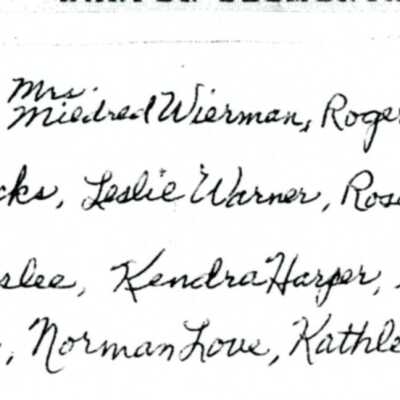 Mrs.
Mildred Wierman, Roger
cks, Leslie Warner, Rose
slee, Kendra Harper,
, Norman Love, Kathle